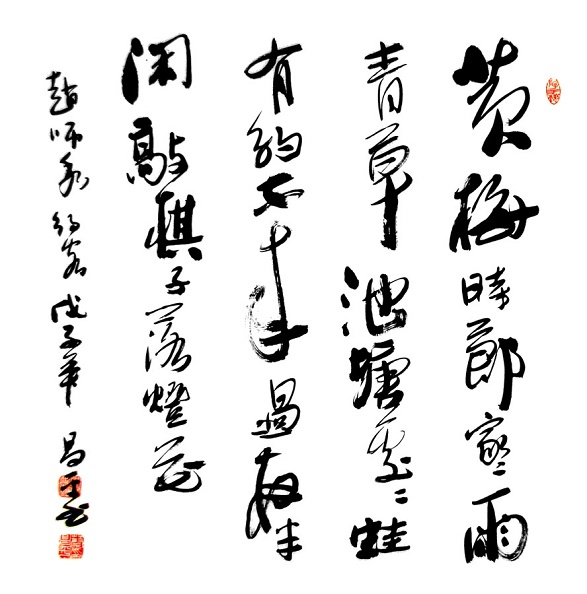 黄梅時節家〻雨
青草池塘處〻蛙
有約不来過夜半
閑敲棋子落燈花
趙師秀 約客 戊子年 昌